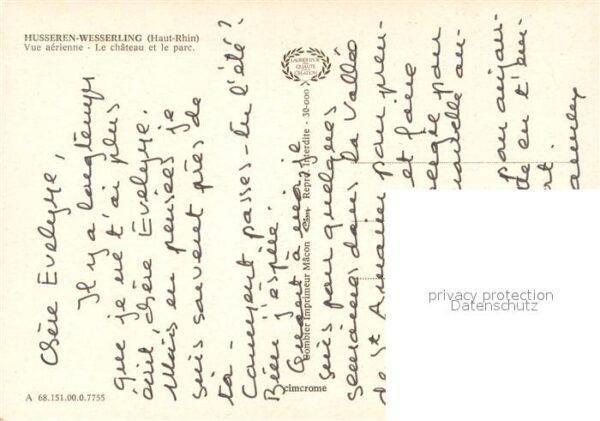 HUSSEREN-WESSERLING (Haut-Rhin)
Vue aérienne - Le château et le parc.
LAURIER D'OR
DE LA QUALITÉ
CRÉATION
Combier Imprimeur Mâcon Repro. Interdite - 30-000
cimcrome
A 68.151.00.0.7755
Chère Evelyne,
Il y a longtemps
que je ne t'ai plus
écrit, chère Evelyne.
Mais en pensées je
suis souvent près de
toi-
Comment passes-tu l'été?
Bien j'espère.
Quant à moi je
suis pour quelques
semaines dans la Vallée
de St Amarin pour
et faire
pour
pour aujour-
de en t'em-
privacy protection
Datenschutz